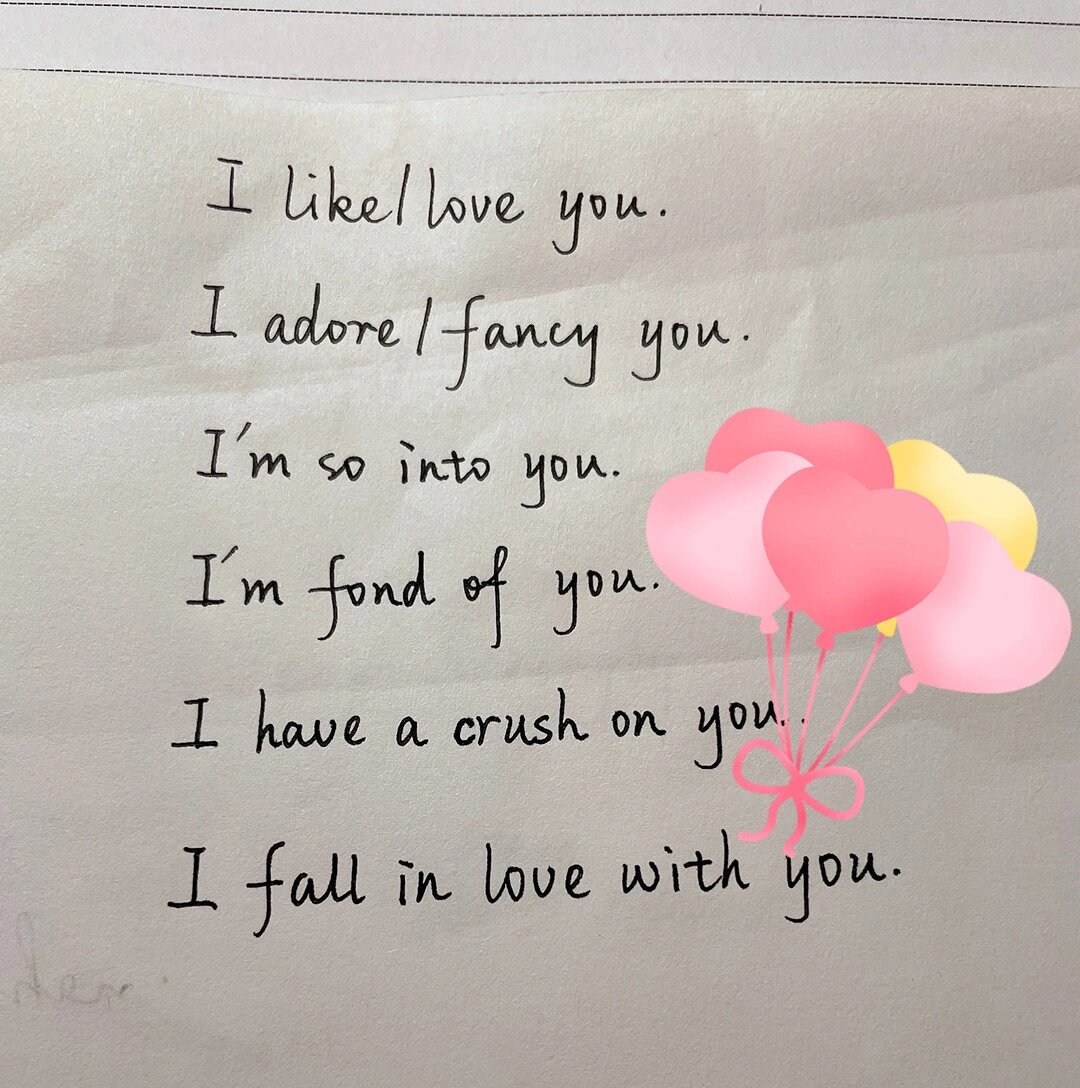 I like/love you.
I adore/fancy you.
I'm so into you.
I'm fond of you.
I have a crush on you.
I fall in love with you.